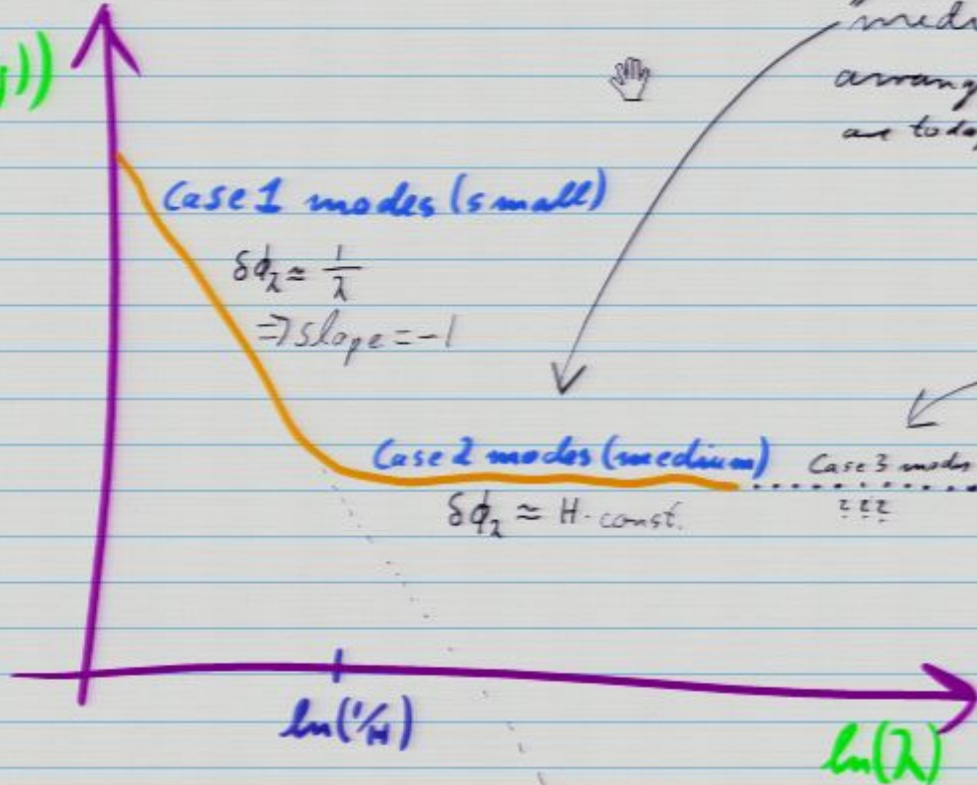 ))
"medi
arrang
are today
Case 1 modes (small)
δϕ_λ ≈ 1/λ
⇒ slope = -1
Case 2 modes (medium)
Case 3 modes
δϕ_λ ≈ H · const.
???
ln(1/H)
ln(λ)